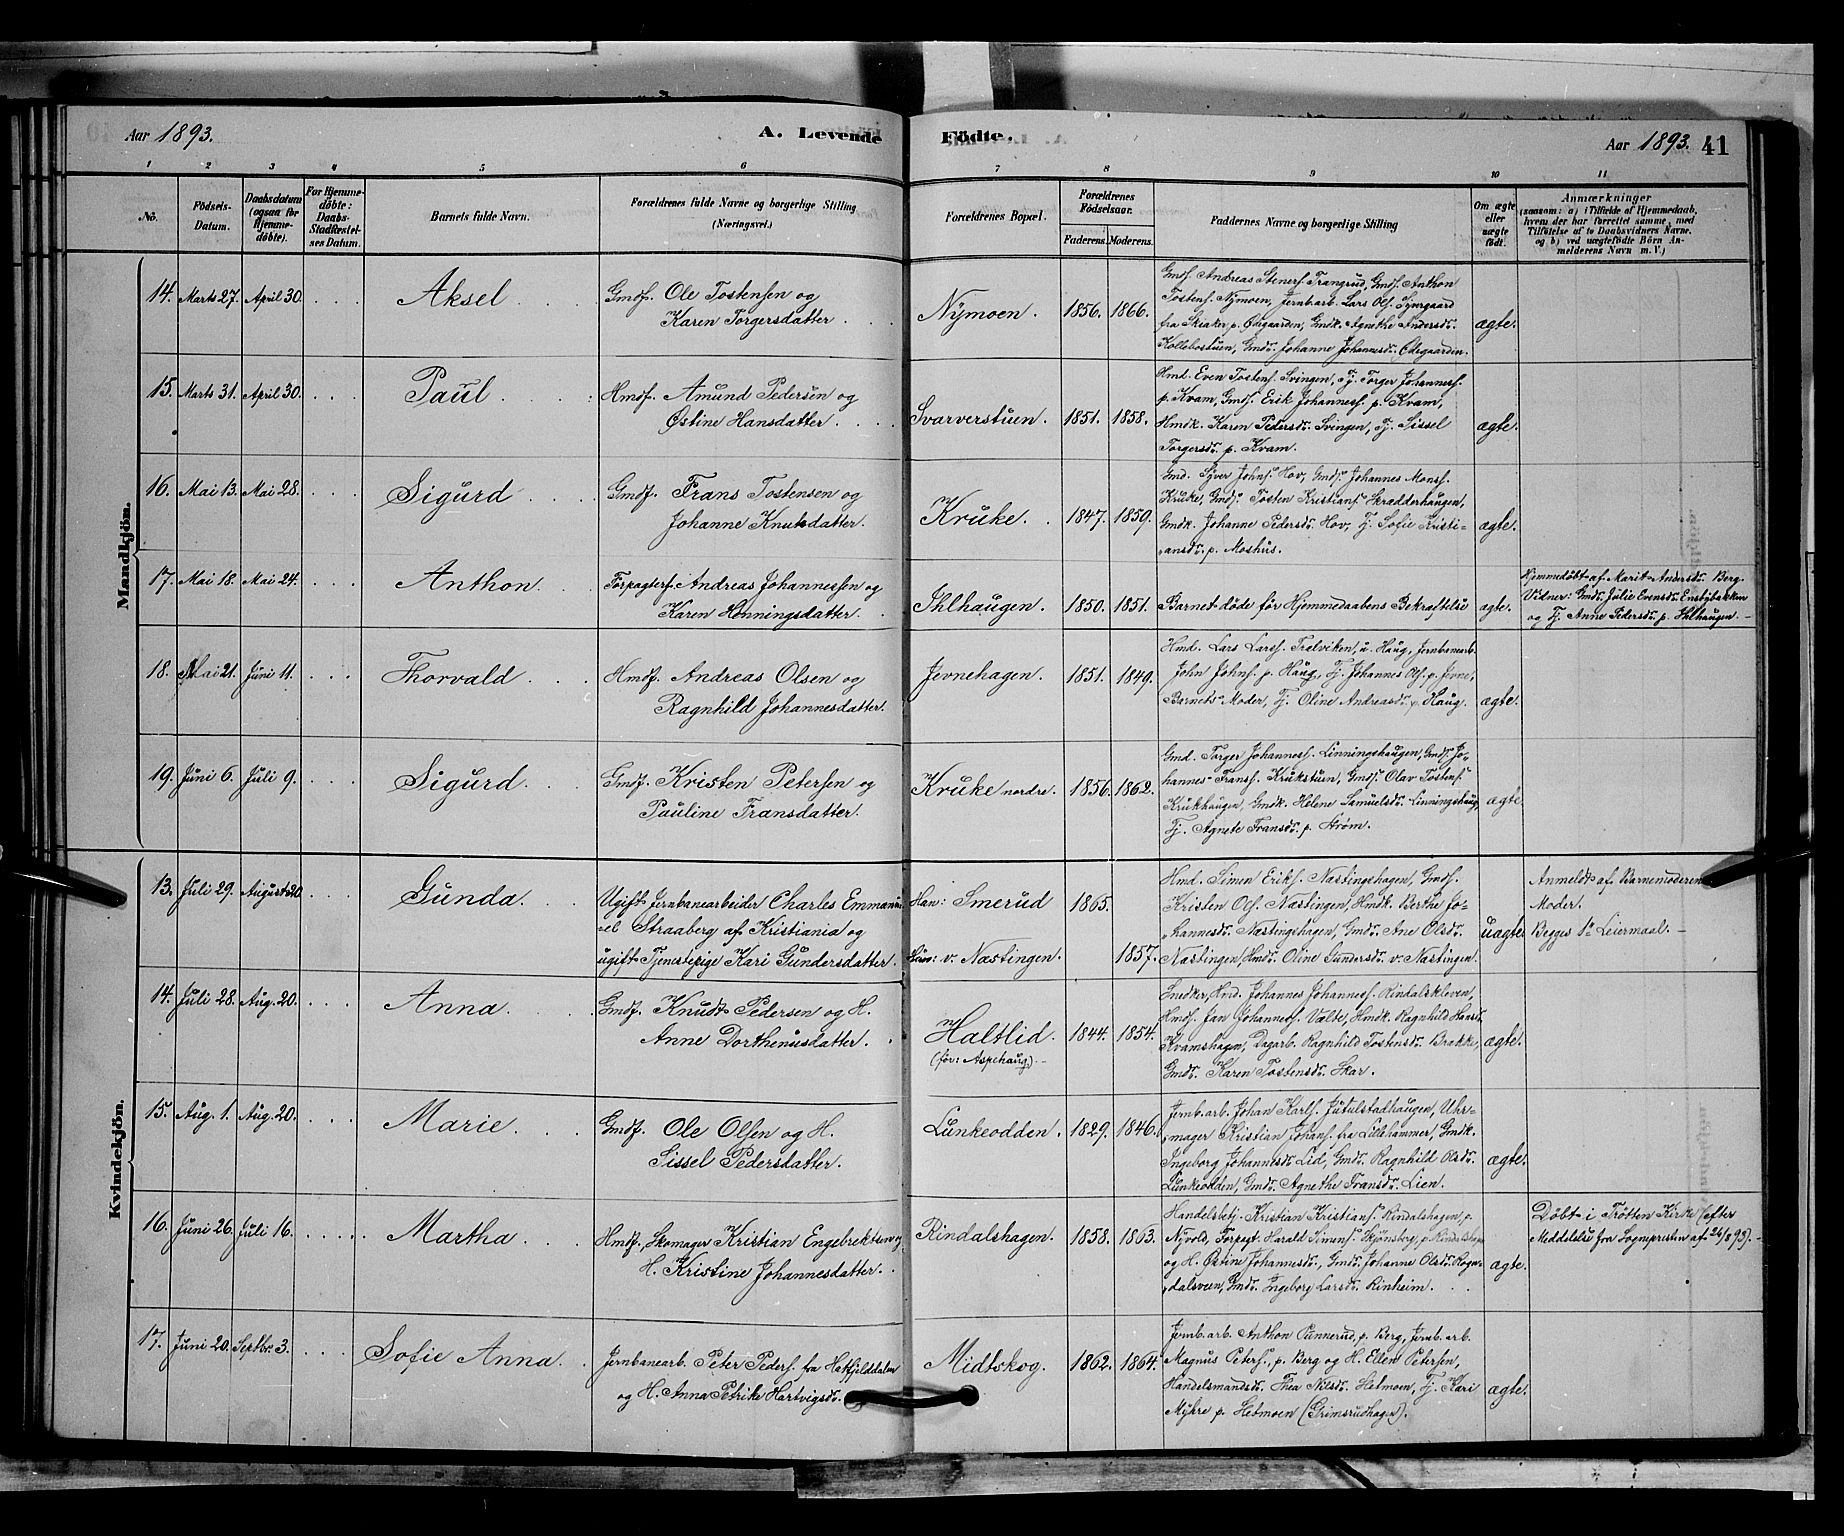 Aar 1893.
A. Levende
Födte.
Aar 1893. 41
1 2 3 4 5 6 7 8 9 10 11
No.
Födsels-
Datum.
Daabsdatum
(ogsaa for
Hjemme-
döbte).
For Hjemme-
döbte:
Daabs-
Stadfæstel-
ses Datum.
Barnets fulde Navn.
Forældrenes fulde Navne og borgerlige Stilling
(Næringsvei.)
Forældrenes Bopæl.
Forældrenes
Födselsaar.
Faderens. Moderens.
Faddernes Navne og borgerlige Stilling
Om ægte
eller
uægte
födt.
Anmærkninger
(saasom: a) i Tilfælde af Hjemmedaab,
hvem der har forrettet samme, med
Tilföielse af to Daabsvidners Navne,
og b) ved uægtefödte Börn An-
melderens Navn m. V.)
Mandkjön.
14. Marts 27. April 30. Aksel
Gmdf. Ole Tostensen og
Karen Torgersdatter.
Nymoen. 1856. 1866.
Gmdf. Andreas Stenersf. Trangrud, Gmdf. Anthon
Tostensf. Nymoen, Jernb.arb. Lars Olsf.
fra Skiaker p. Ødegaarden, Gmdk. Agnethe Andersdr.
Kollebostuen, Gmdr. Johanne Johannesdr. Ødegaarden.
ægte.
15. Marts 31. April 30. Paul
Hmdf. Amund Pedersen og
Østine Hansdatter.
Svarverstuen. 1851. 1858.
Hmd. Even Tostensf. Svingen, Tj. Torger Johannesf.
p. Kvam, Gmdsf. Erik Johannesf. p. Kvam,
Hmdk. Karen Pedersdr. Svingen, Tj. Sissel
Torgersdr. p. Kvam.
ægte.
16. Mai 13. Mai 28. Sigurd
Gmdf. Frans Tostensen og
Johanne Knutsdatter.
Kruke. 1847. 1859.
Gmd. Syver Johnsf. Hov, Gmdsf. Johannes Monsf.
Kruke, Gmdsf. Tosten Kristiansf. Skrædderhaugen,
Gmdk. Johanne Pedersdr. Hov, Tj. Sofie Kristi-
ansdr. p. Moshus.
ægte.
17. Mai 18. Mai 24. Anthon.
Forpagterf. Andreas Johannessen og
Karen Henningsdatter.
Ihlhaugen. 1850. 1851.
Barnet døde før Hjemmedaabens Bekræftelse
ægte.
Hjemmedøbt af Marit Andersdr. Berg.
Vidner: Gmdr. Julie Evensdr. Enstybakken
og Tj. Anne Pedersdr. p. Ihlhaugen.
18. Mai 21. Juni 11. Thorvald
Hmdf. Andreas Olsen og
Ragnhild Johannesdatter.
Jevnehagen. 1851. 1849.
Hmd. Lars Larsf. Trelviken, u. Haug, Jernbanearb.
John Johnsf. p. Haug, Tj. Johannes Olsf. p. Jevne,
Barnets Moder, Tj. Oline Andreasdr. p. Haug.
ægte.
19. Juni 6. Juli 9. Sigurd
Gmdf. Kristen Petersen og
Pauline Fransdatter.
Kruke nordre. 1856. 1862.
Gmd. Torger Johannesf. Linningshaugen, Gmdsf. Jo-
hannes Fransf. Krukstuen, Gmdsf. Olav Tostensf.
Krukhaugen, Gmdk. Helene Samuelsdr. Linningshaug,
Tj. Agnete Fransdr. p. Strøm.
ægte.
Kvindekjön.
13. Juli 29. August 20. Gunda.
Ugift Jernbanearbeider Charles Emmanu-
el Straaberg af Kristiania og
ugift Tjenestepige Kari Gundersdatter.
Han: Smerud 1865.
Hun: v. Næstingen. 1857.
Hmd. Simen Eriksf. Næstingshagen, Gmdf.
Kristen Olsf. Næstingen, Hmdk. Berthe Jo-
hannesdr. Næstingshagen, Gmdr. Ane Olsdr.
Næstingen, Hmdr. Oline Gundersdr. v. Næstingen.
uægte
Anmeldt af Barnemoderens
Moder.
Begges 1ste Leiermaal.
14. Juli 28. Aug. 20. Anna.
Gmdf. Knudt Pedersen og H.
Anne Dorthenusdatter.
n Haltlid. 1844. 1854.
(før: Aspehaug).
Snedker, Hmd. Johannes Johannesf. Rindalskleven,
Hmdf. Jan Johannesf. Vælte, Hmdk. Ragnhild Hansdr.
Kvamshagen, Dagarb. Ragnhild Tostensdr. Brække,
Gmdr. Karen Tostensdr. Skar.
ægte.
15. Aug. 1. Aug. 20. Marie.
Gmdf. Ole Olsen og H.
Sissel Pedersdatter.
Lunkeodden. 1829. 1846.
Jernb.arb. Johan Karlf. Jutulstadhaugen, Uhr-
mager Kristian Johansf. fra Lillehammer, Gmdk.
Ingeborg Johannesdr. Lid, Gmdr. Ragnhild Olsdr.
Lunkeodden, Gmdr. Agnethe Fransdr. Lien.
ægte.
16. Juni 26. Juli 16. Martha
Hmdf., Skomager Kristian Engebrektsen og
H. Kristine Johannesdatter.
Rindalshagen. 1858. 1863.
Handelsbetj. Kristian Kristiansf. Rindalshagen, p.
Nyvold, Forpagt. Harald Simensf. Skjønsberg, p. Rindalshagen
og H. Østine Johannesdr., Gmdr. Johanne Olsdr.
dalsveen, Gmdr. Ingeborg Larsdr. Rinheim.
ægte.
Døbt i Trötten Kirke (efter
Meddelelse fra Sognepresten af 24/8 93).
17. Juni 20. Septbr. 3. Sofie Anna.
Jernbanearb. Peter Pedersf. fra Hatfjelddalen
og H. Anna Petrike Hartvigsdr.
Midtskog. 1862. 1864.
Jernb.arb. Anthon Punnerud, p. Berg, Jernb.arb.
Magnus Petersf., p. Berg og H. Ellen Petersen,
Handelsmandsdr. Thea Nilsdr. Helmoen, Tj. Kari
Myhre p. Helmoen (Grimsrudhagen).
ægte.